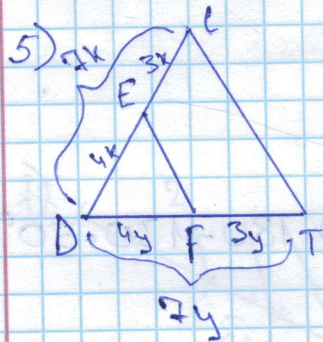 5) 7x
C
3x
E
4x
D 4y F 3y T
7y